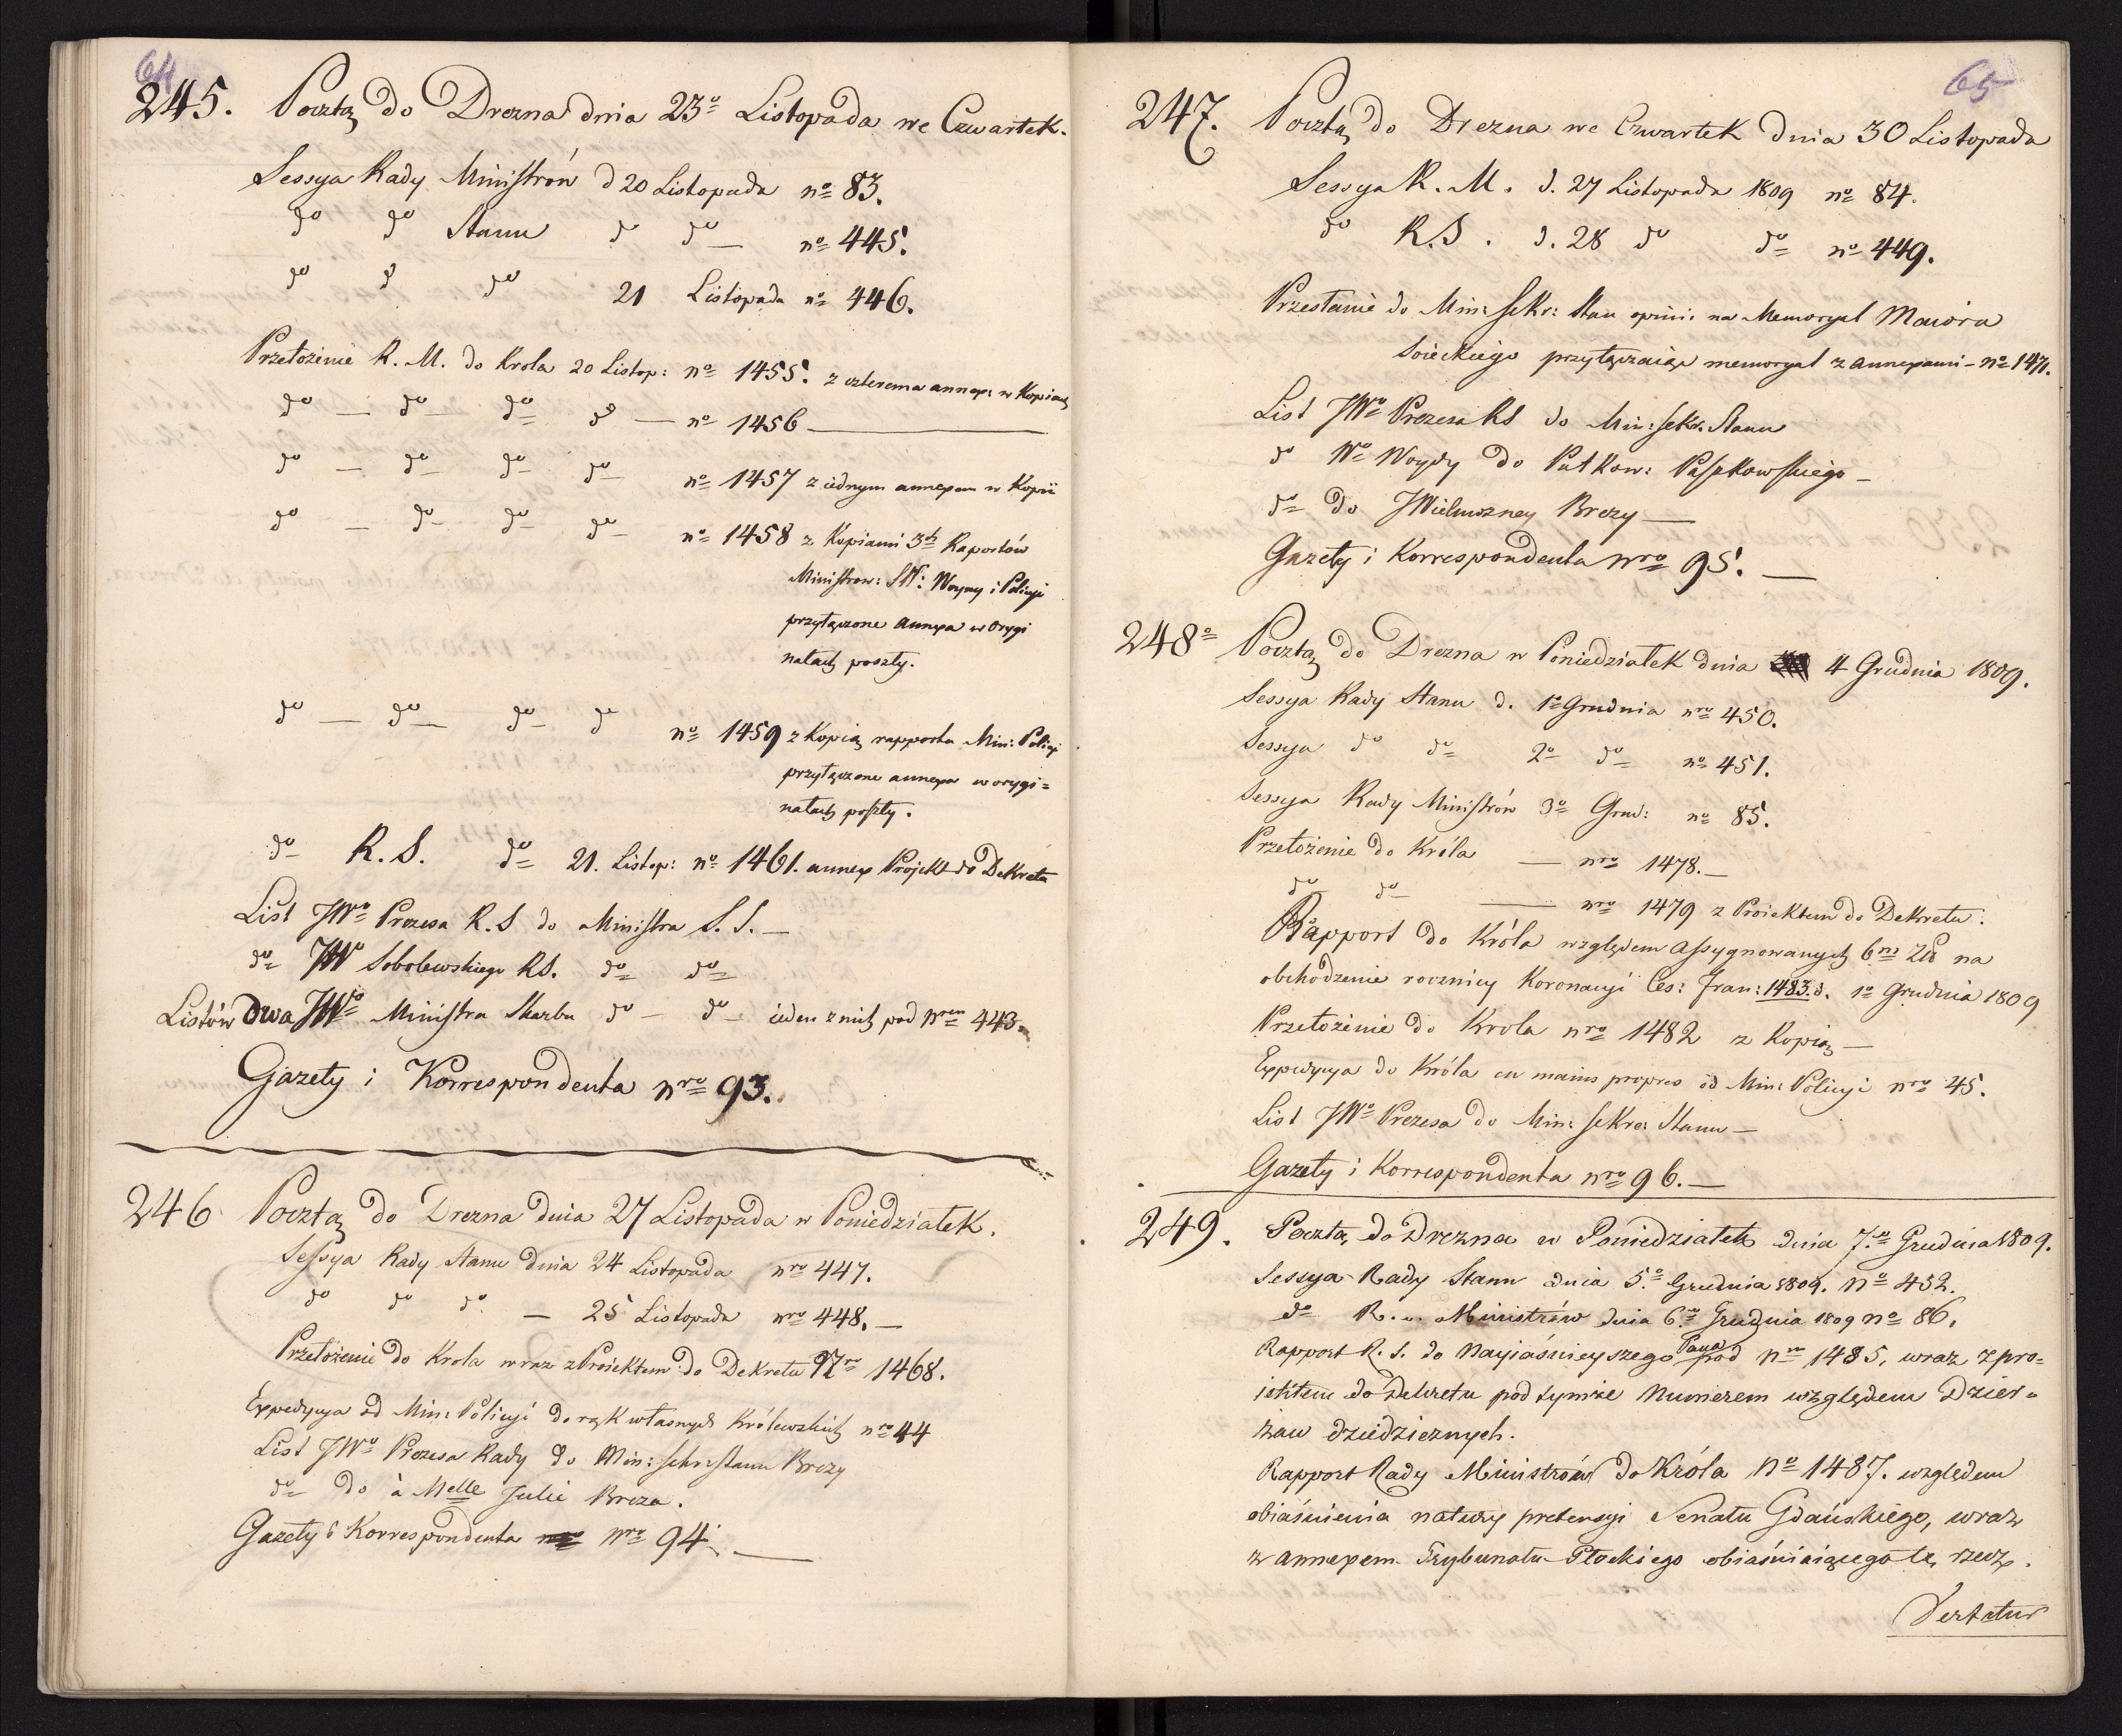 64
245. Pocztą do Drezna dnia 23º Listopada we Czwartek.
Sessya Rady Ministrów d 20 Listopada nº 83.
dº dº Stanu dº dº nº 445.
dº dº dº 21 Listopada nº 446.
Przełożenie R. M. do Krola 20 Listop: nº 1455. z czterema annex: w Kopiach
dº — dº dº dº — nº 1456 —
dº — dº dº dº nº 1457 z iednym annexem w Kopii
dº — dº dº dº nº 1458 z Kopiami 3ch Raportów
Ministrow: SW: Woyny i Policyi
przyłączone annexa w orygi
nałach poszły.
dº — dº — dº dº nº 1459 z Kopią rapportu Min: Policyi
przyłączone annexa w orygi=
nałach poszły.
dº R. S. dº 21. Listop: nº 1461. annex Projekt do Dekretu
List JWº Prezesa R. S do Ministra S. S. —
dº JW Sobolewskiego RS. dº dº
Listów dwa JWº Ministra Skarbu dº — dº — ieden z nich pod Nrem 443.
Gazety i Korrespondenta nrº 93.
246 Pocztą do Drezna dnia 27 Listopada w Poniedziałek.
Sessya Rady Stanu dnia 24 Listopada nrº 447.
dº dº dº — 25 Listopada nrº 448. —
Przełożenie do Krola wraz z Proiektem do Dekretu Nrº 1468.
Expedycya od Min: Policyi do rąk własnych Królewskich nrº 44
List JWº Prezesa Rady do Min: Sekr: Stanu Brezy
dº do à Melle Julie Breza.
Gazety i Korrespondenta nrº 94. —
65
247. Pocztą do Drezna we Czwartek dnia 30 Listopada
Sessya R. M. d. 27 Listopada 1809 nº 84.
dº R. S. d. 28 dº dº nº 449.
Przesłanie do Min: Sekr: Stanu opinii na Memoryał Maiora
przyłączaiąc memoryał z annexami — Nº 1471.
List JWº Prezesa RS do Min: Sekr. Stanu
dº Wº Woydy do Putkow: Paszkowskiego —
dº do JWielmożney Brezy —
Gazety i Korrespondenta nrº 95. —
248º Pocztą do Drezna w Poniedziałek dnia 4 Grudnia 1809.
Sessya Rady Stanu d. 1º Grudnia nrº 450.
Sessya dº dº 2º dº nº 451.
Sessya Rady Ministrów 3º Grud: nº 85.
Przełożenie do Króla — nrº 1478. —
dº dº — nrº 1479 z Proiektem do Dekretu.
Rapport do Króla względem assygnowanych 6m Zł na
obchodzenie rocznicy Koronacyi Ces: Fran: 1483. d. 1º Grudnia 1809
Przełożenie do Krola nrº 1482 z Kopią —
Expedycya do Króla en mains propres od Min: Policyi nrº 45.
List JWº Prezesa do Min: Sekre: Stanu —
Gazety i Korrespondenta nrº 96. —
249. Pocztą do Drezna w Poniedziałek dnia 7.º Grudnia 1809.
Sessya Rady Stanu dnia 5.º Grudnia 1809. Nº 452.
dº R. Ministrów dnia 6.º Grudnia 1809 Nº 86.
Rapport R. S. do Nayiaśnieyszego Pana pod Nm 1485, wraz z pro=
iektem do Dekretu pod tymże Numerem względem Dzier=
żaw dziedzicznych.
Rapport Rady Ministrów do Króla Nº 1487. względem
obiaśnienia natury pretensyi Senatu Gdańskiego, wraz
z annexem Trybunału Płockiego obiaśniaiącego tę rzecz.
Vertatur